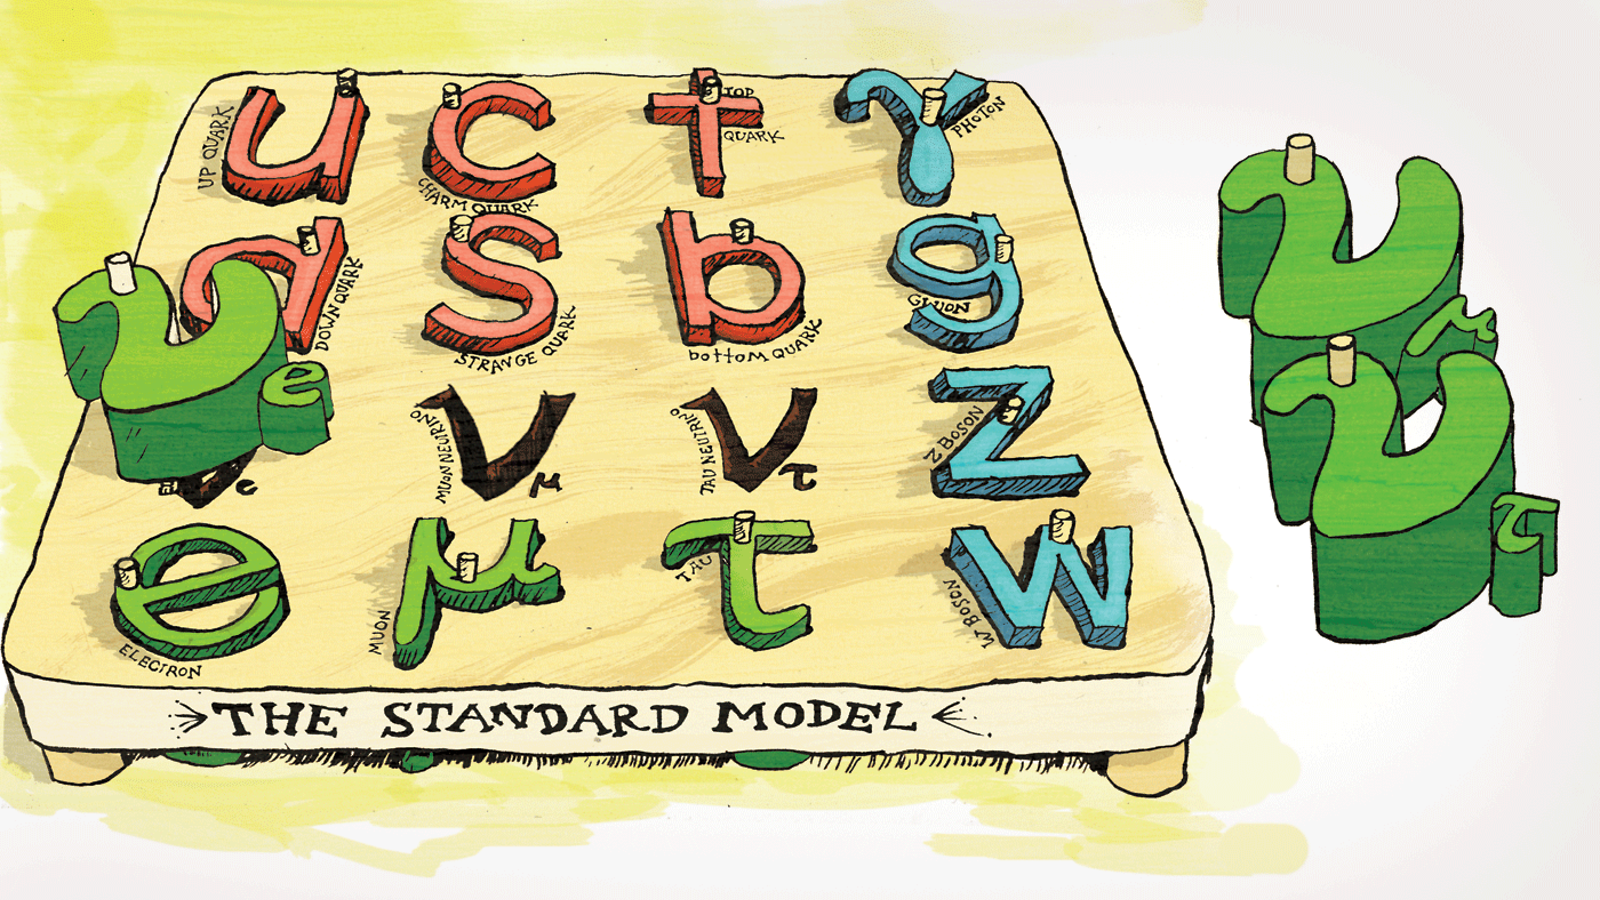 u
UP QUARK
c
CHARM QUARK
t
TOP
QUARK
γ
PHOTON
d
DOWN QUARK
s
STRANGE QUARK
b
bottom QUARK
g
GLUON
ν e
ν e
ν μ
MUON NEUTRINO
ν τ
TAU NEUTRINO
Z
Z BOSON
e
ELECTRON
μ
MUON
τ
TAU
W
W BOSON
ν μ
ν τ
THE STANDARD MODEL